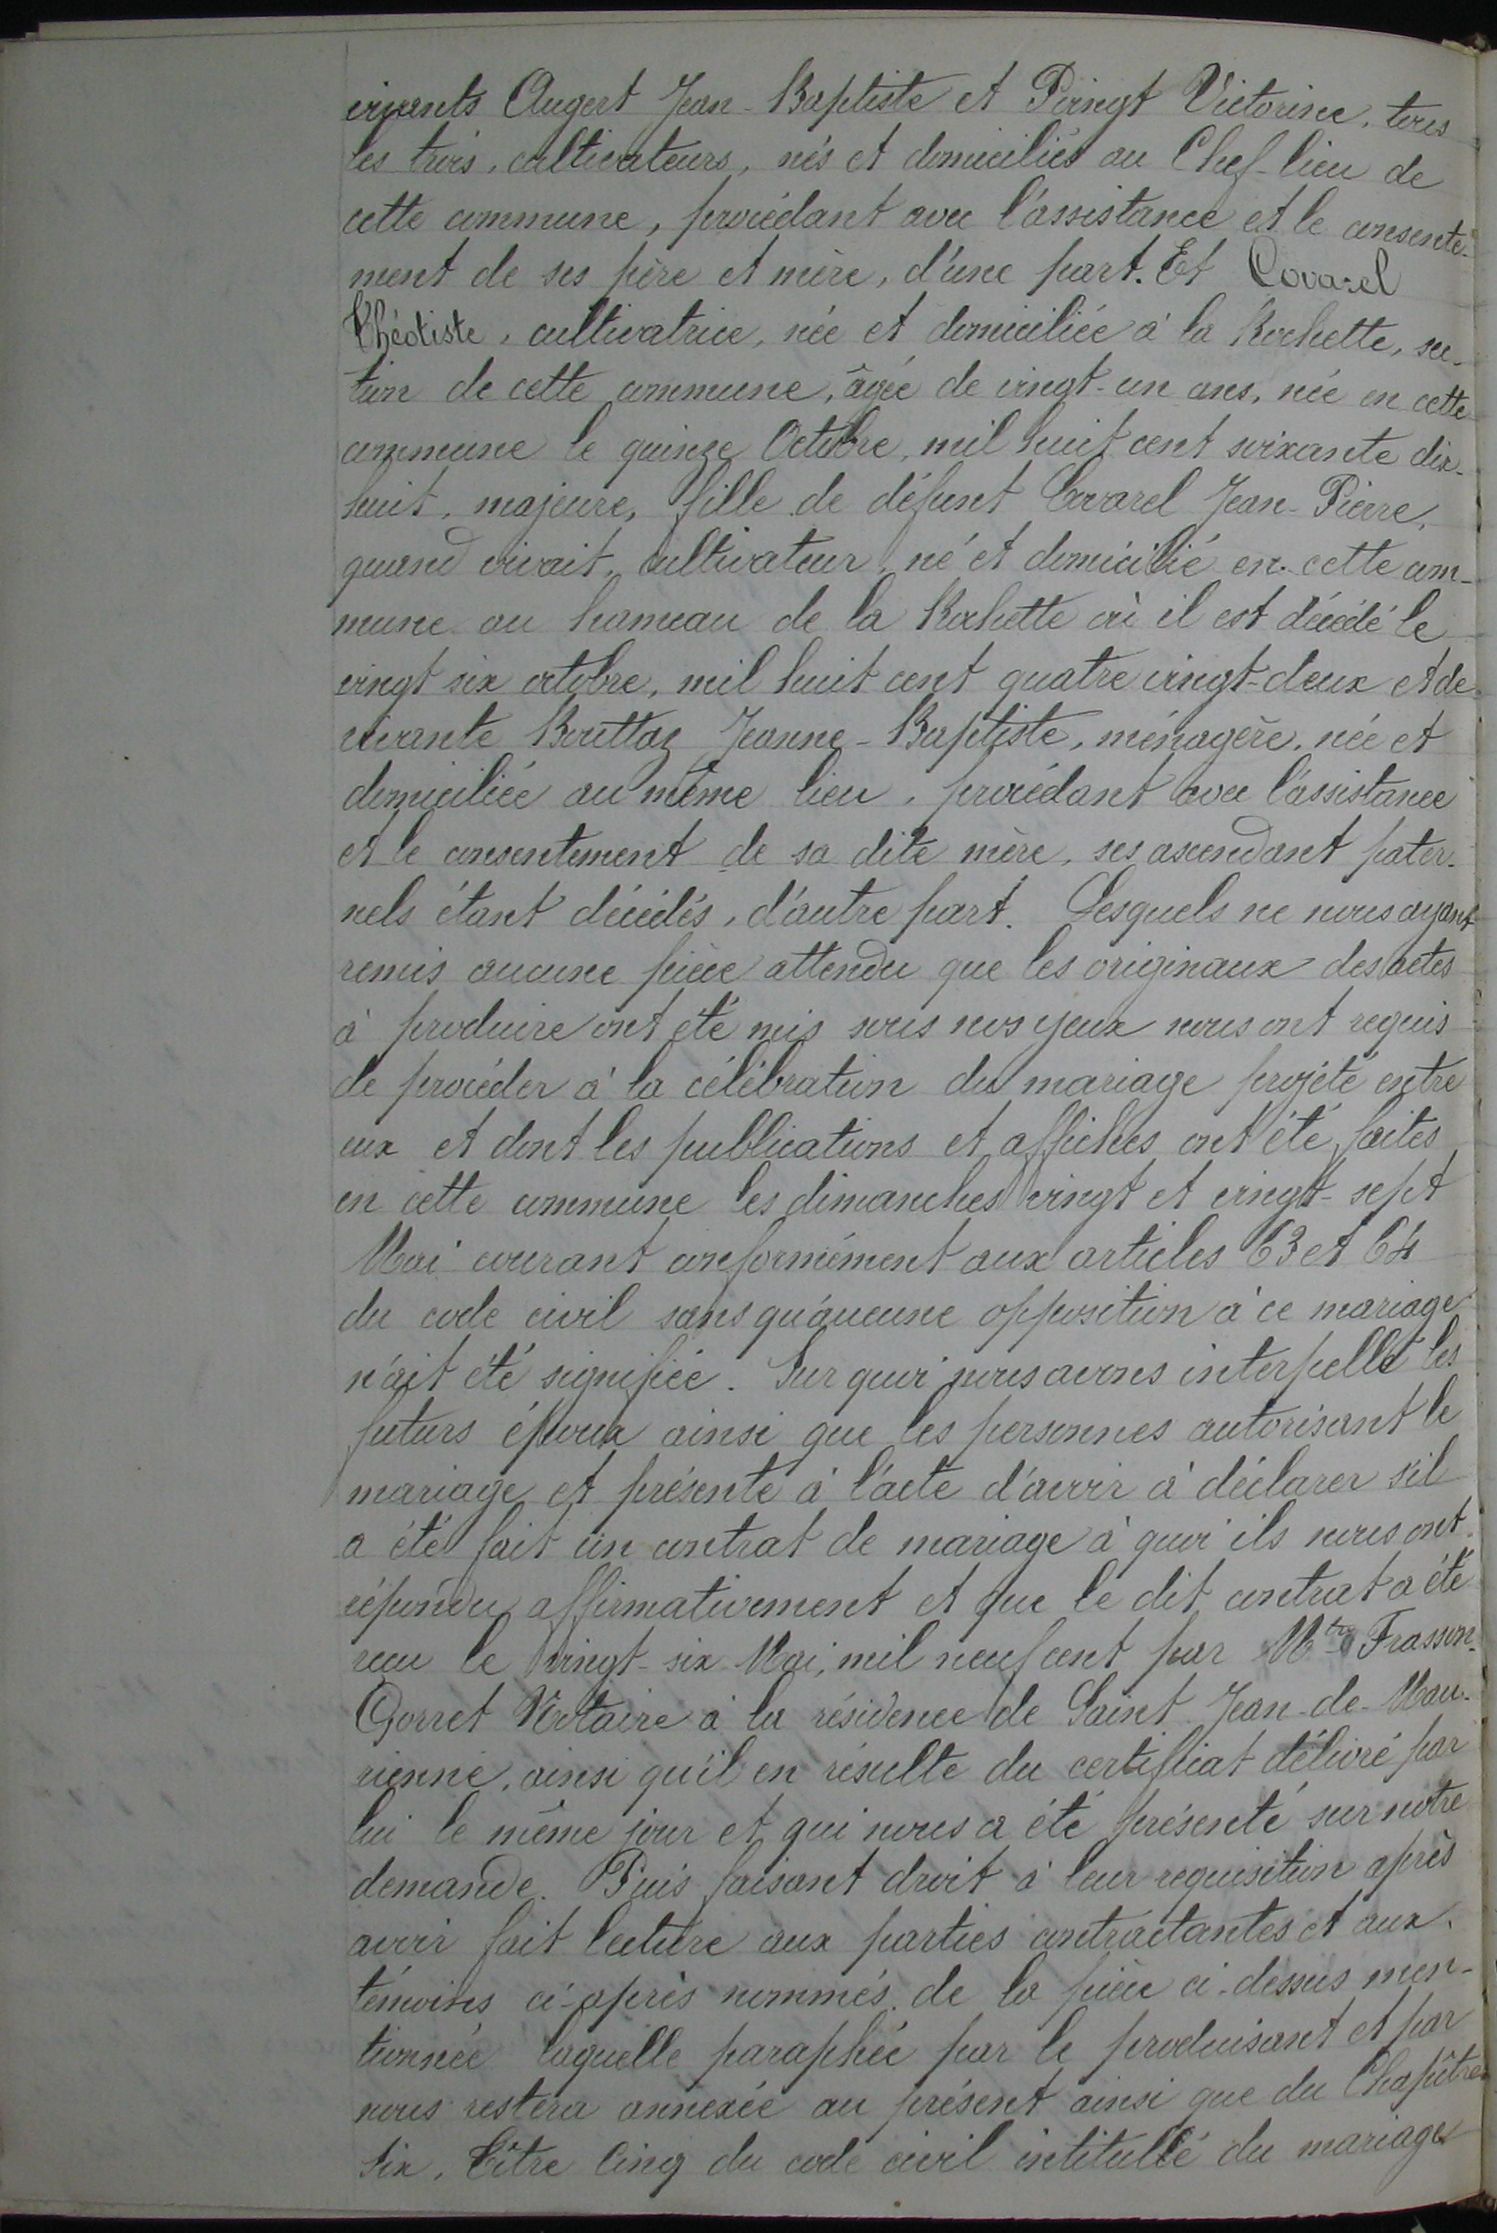 vivants Augert Jean-Baptiste et Pering Victorine, tous
les trois, cultivateurs, nés et domiciliés au Chef-lieu de
cette commune, procédant avec l'assistance et le consente-
ment de ses père et mère, d'une part. Et Covarel
Théotiste, cultivatrice, née et domiciliée à la Rochette, sec-
tion de cette commune, âgée de vingt-un ans, née en cette
commune le quinze Octobre, mil huit cent soixante dix-
huit, majeure, fille de défunt Covarel Jean-Pierre,
quand vivait, cultivateur, né et domicilié en cette com-
mune au hameau de la Rochette où il est décédé le
vingt six octobre, mil huit cent quatre vingt-deux et de
vivante Bouttaz Jeanne-Baptiste, ménagère, née et
domiciliée au même lieu, procédant avec l'assistance
et le consentement de sa dite mère, ses ascendant pater-
nels étant décédés, d'autre part. Lesquels ne nous ayant
remis aucune pièce attendu que les originaux des actes
à produire ont été mis sous nos yeux nous ont requis
de procéder à la célébration du mariage projeté entre
eux et dont les publications et affiches ont été faites
en cette commune les dimanches vingt et vingt-sept
Mai courant conformément aux articles 63 et 64
du code civil sans qu'aucune opposition à ce mariage
n'ait été signifiée. Sur quoi nous avons interpellé les
futurs époux ainsi que les personnes autorisant le
mariage et présente à l'acte d'avoir à déclarer s'il
a été fait un contrat de mariage à quoi ils nous ont
répondu affirmativement et que le dit contrat a été
reçu le vingt-six Mai, mil neuf cent par Mtre Frasson-
Gorret Notaire à la résidence de Saint Jean-de-Mau-
rienne, ainsi qu'il en résulte du certificat délivré par
lui le même jour et qui nous a été présenté sur notre
demande. Puis faisant droit à leur requisition après
avoir fait lecture aux parties contractantes et aux
témoins ci-après nommés, de la pièce ci-dessus men-
tionnée laquelle paraphée par le produisant et par
nous restera annexée au présent ainsi que du Chapître
six, Titre Cinq du code civil intitullé du mariage